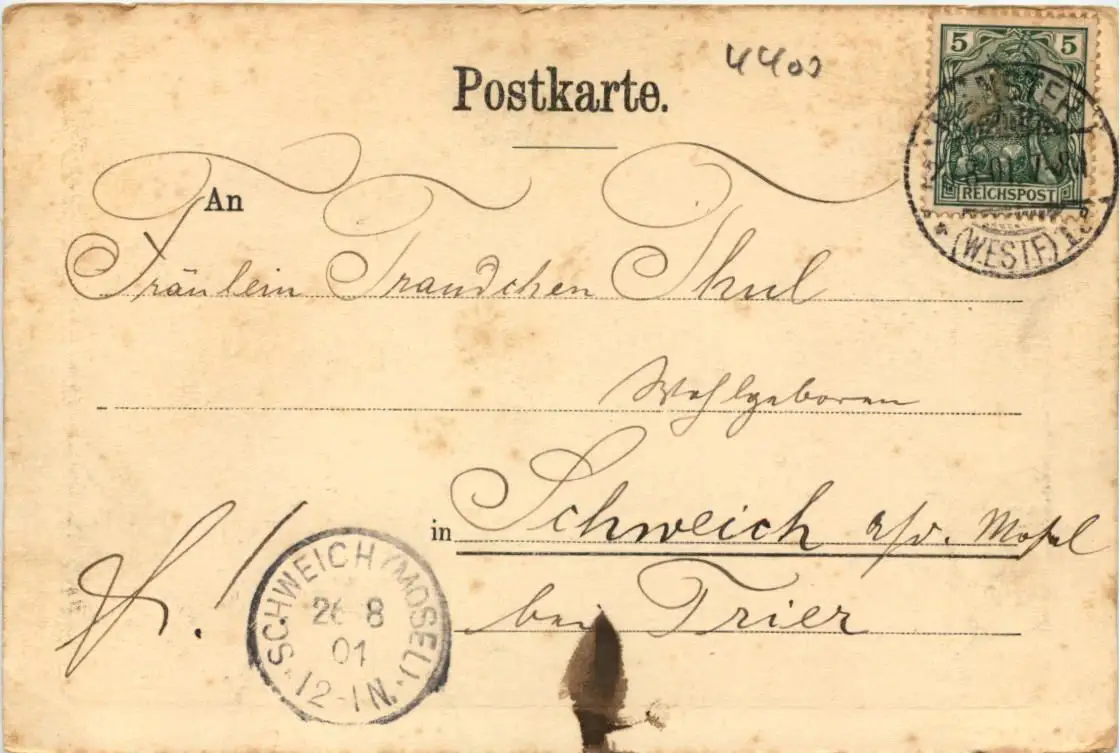 4400
Postkarte.
5 5
REICHSPOST
(WESTF)
An
Fräulein Traudchen Thul
Wohlgeboren
in Schweich a/d. Mosel
bei Trier
SCHWEICH (MOSEL)
26 8
01
12-1N.